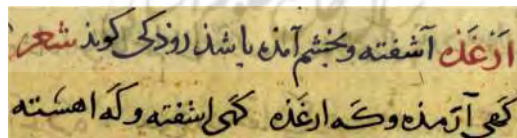 ارغذه آشفته و بخشم آمذه باشذ روذکی کویذ شعر
کهی آرمذه و که ارغذه کهی اشفته و که اهسته